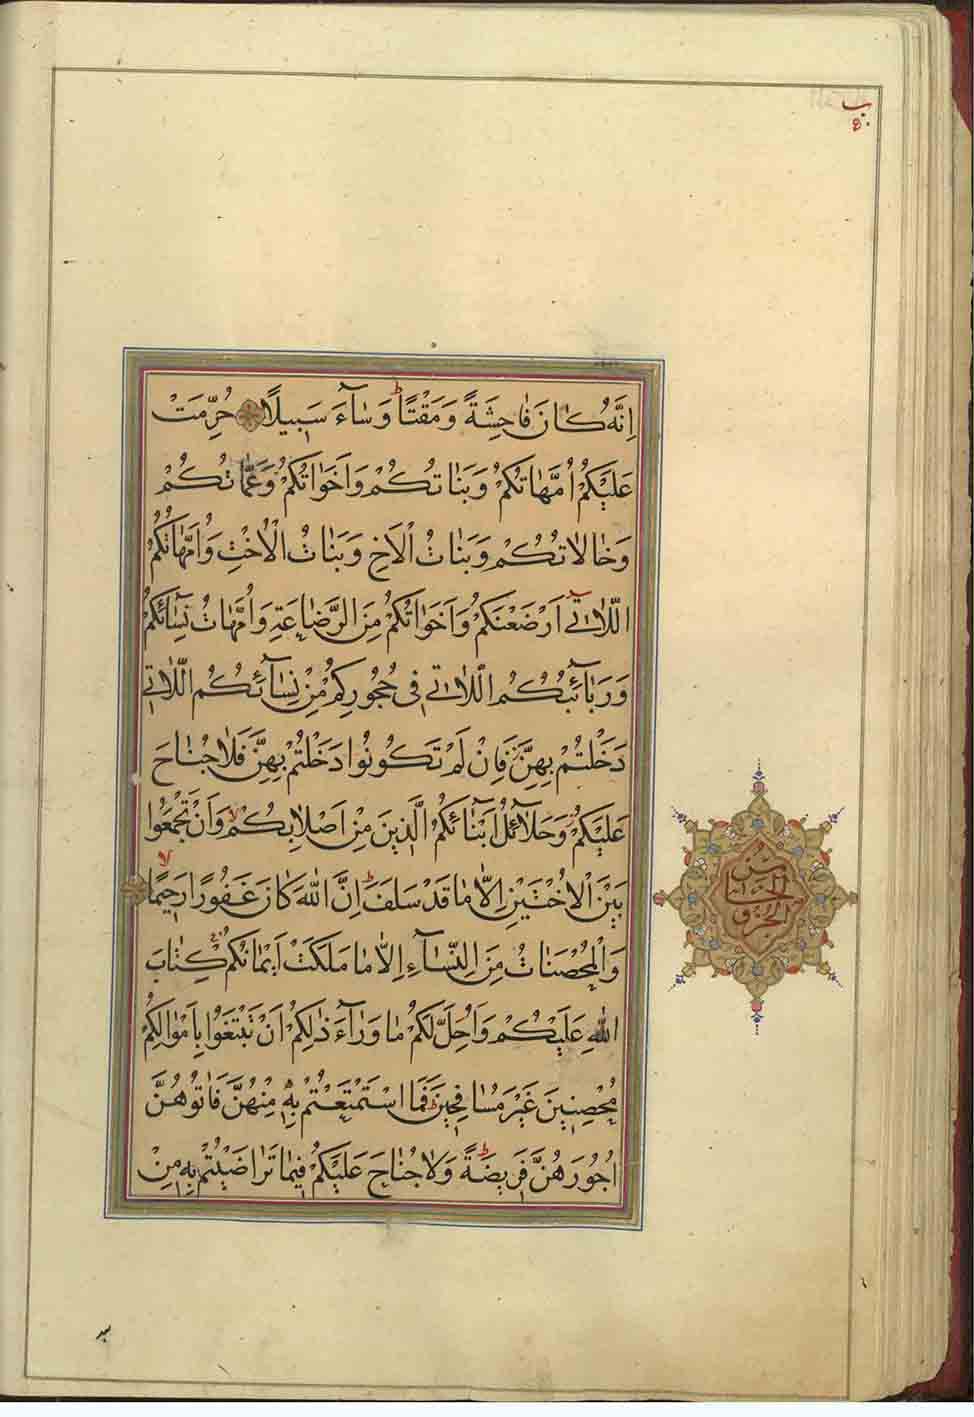 اِنَّهُ كَانَ فَاحِشَةً وَمَقْتًا ط وَسَاۤءَ سَبِيلًا حُرِّمَتْ
عَلَيْكُمْ اُمَّهَاتُكُمْ وَبَنَاتُكُمْ وَاَخَوَاتُكُمْ وَعَمَّاتُكُمْ
وَخَالَاتُكُمْ وَبَنَاتُ الْاَخِ وَبَنَاتُ الْاُخْتِ وَاُمَّهَاتُكُمُ
اللَّاتِي اَرْضَعْنَكُمْ وَاَخَوَاتُكُمْ مِنَ الرَّضَاعَةِ وَاُمَّهَاتُ نِسَائِكُمْ
وَرَبَاۤئِبُكُمُ اللَّاتِي فِي حُجُورِكُمْ مِنْ نِسَاۤئِكُمُ اللَّاتِي
دَخَلْتُمْ بِهِنَّ فَاِنْ لَمْ تَكُونُوا دَخَلْتُمْ بِهِنَّ فَلَا جُنَاحَ
عَلَيْكُمْ وَحَلَاۤئِلُ اَبْنَاۤئِكُمُ الَّذِينَ مِنْ اَصْلَابِكُمْ لا وَاَنْ تَجْمَعُوا
بَيْنَ الْاُخْتَيْنِ اِلَّا مَا قَدْ سَلَفَ ط اِنَّ اللّٰهَ كَانَ غَفُورًا رَحِيمًا لا
وَالْمُحْصَنَاتُ مِنَ النِّسَاۤءِ اِلَّا مَا مَلَكَتْ اَيْمَانُكُمْ كِتَابَ
اللّٰهِ عَلَيْكُمْ وَاُحِلَّ لَكُمْ مَا وَرَاۤءَ ذٰلِكُمْ اَنْ تَبْتَغُوا بِاَمْوَالِكُمْ
مُحْصِنِينَ غَيْرَ مُسَافِحِينَ ط فَمَا اسْتَمْتَعْتُمْ بِهِ مِنْهُنَّ فَاٰتُوهُنَّ
اُجُورَهُنَّ فَرِيضَةً ط وَلَا جُنَاحَ عَلَيْكُمْ فِيمَا تَرَاضَيْتُمْ بِهِ مِنْ
الجزو
الخامس
من